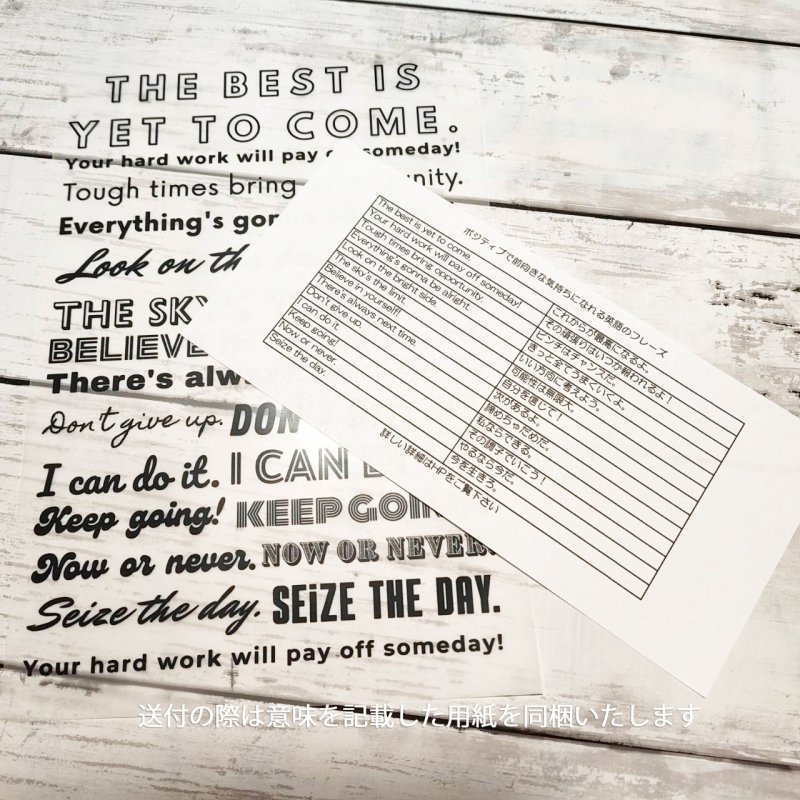 THE BEST IS
YET TO COME.
Your hard work will pay someday!
Tough times bring
Everything's
Look on
THE SKY
BELIEVE
There's
Don't give up. DON
I can do it. I CAN
Keep going! KEEP
Now or never. NOW OR NEVER.
Seize the day. SEiZE THE DAY.
Your hard work will pay off someday!
ポジティブで前向きな気持ちになれる英語のフレーズ
The best is yet to come. これからが最高になるよ。
Your hard work will pay off someday! その頑張りはいつか報われるよ！
Tough times bring opportunity. ピンチはチャンスだ。
Everything's gonna be alright. きっと全てうまくいくよ。
Look on the bright side. いい方向に考えよう。
The sky's the limit. 可能性は無限大。
Believe in yourself! 自分を信じて！
There's always next time. 次があるよ。
Don't give up. 諦めちゃだめだ。
I can do it. 私ならできる。
Keep going! その調子でいこう！
Now or never やるなら今だ。
Seize the day. 今を生きろ。
詳しい詳細はHPをご覧下さい
送付の際は意味を記載した用紙を同梱いたします